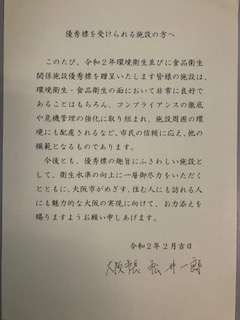 優秀標を受けられる施設の方へ
このたび、令和２年環境衛生並びに食品衛生
関係施設優秀標を贈呈いたします皆様の施設は、
環境衛生・食品衛生の面において非常に良好で
あることはもちろん、コンプライアンスの徹底
や危機管理の強化に取り組まれ、施設周囲の環
境にも配慮されるなど、市民の信頼に応え、他の
模範となるものであります。
今後とも、優秀標の趣旨にふさわしい施設と
して、衛生水準の向上に一層御尽力をいただく
とともに、大阪市がめざす、住む人にも訪れる人
にも魅力的な大阪の実現に向けて、お力添えを
賜りますようお願い申しあげます。
令和２年２月吉日
大阪市長 松井一郎